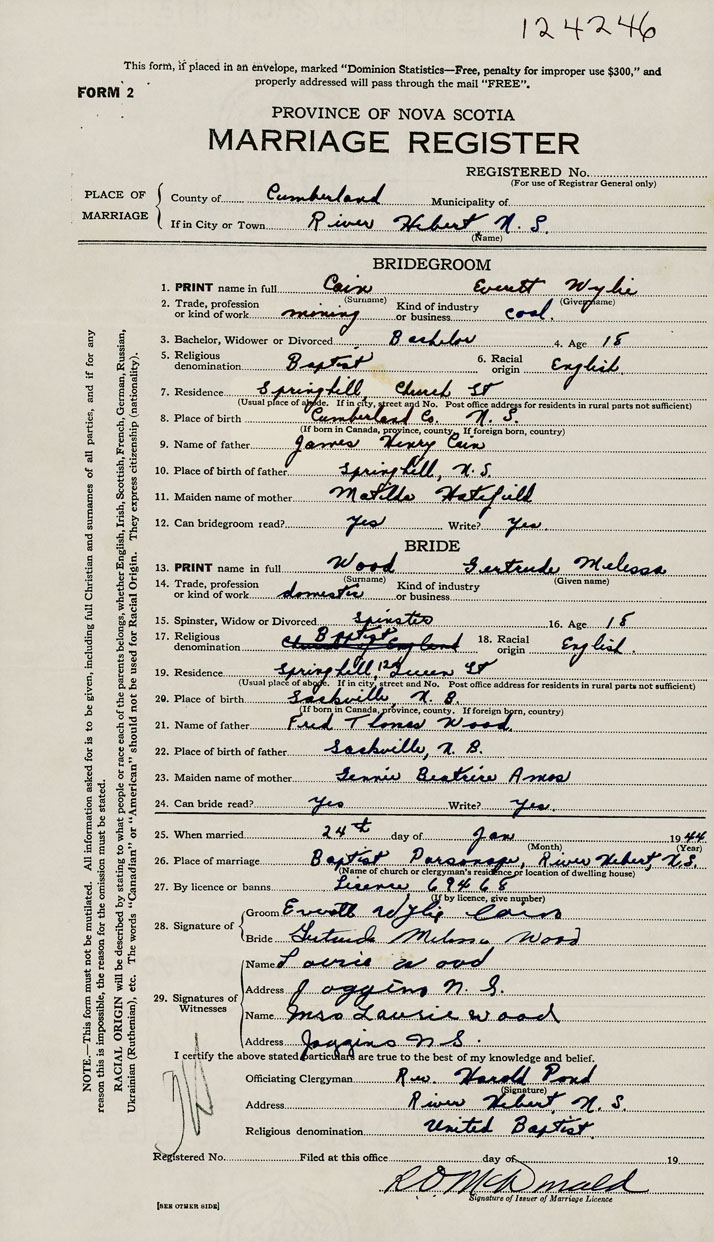 124246
This form, if placed in an envelope, marked "Dominion Statistics—Free, penalty for improper use $300," and
properly addressed will pass through the mail "FREE".
FORM 2
PROVINCE OF NOVA SCOTIA
MARRIAGE REGISTER
REGISTERED No.
(For use of Registrar General only)
PLACE OF MARRIAGE
County of Cumberland Municipality of
If in City or Town River Hebert N. S.
(Name)
BRIDEGROOM
1. PRINT name in full Cain Everett Wylie
(Surname) (Given name)
2. Trade, profession or kind of work mining Kind of industry or business coal.
3. Bachelor, Widower or Divorced Bachelor 4. Age 18
5. Religious denomination Baptist 6. Racial origin English.
7. Residence Springhill, Church St
(Usual place of abode. If in city, street and No. Post office address for residents in rural parts not sufficient)
8. Place of birth Cumberland Co. N. S.
(If born in Canada, province, county. If foreign born, country)
9. Name of father James Henry Cain
10. Place of birth of father Springhill, N. S.
11. Maiden name of mother Matilda Hatfield
12. Can bridegroom read? Yes Write? Yes.
BRIDE
13. PRINT name in full Wood Gertrude Melessa
(Surname) (Given name)
14. Trade, profession or kind of work domestic Kind of industry or business
15. Spinster, Widow or Divorced Spinster 16. Age 18
17. Religious denomination Baptist Church of England 18. Racial origin English.
19. Residence Springhill, 124 Queen St
(Usual place of abode. If in city, street and No. Post office address for residents in rural parts not sufficient)
20. Place of birth Sackville, N. B.
(If born in Canada, province, county. If foreign born, country)
21. Name of father Fred Thomas Wood
22. Place of birth of father Sackville, N. B.
23. Maiden name of mother Jennie Beatrice Amos
24. Can bride read? Yes Write? Yes.
25. When married 24th day of Jan 1944
(Month) (Year)
26. Place of marriage Baptist Parsonage, River Hebert, N.S.
(Name of church or clergyman's residence or location of dwelling house)
27. By licence or banns License 69468
(If by licence, give number)
28. Signature of
Groom Everett Wylie Cain
Bride Gertrude Melessa Wood
29. Signatures of Witnesses
Name Laurie Wood
Address Joggins N. S.
Name Mrs Laurie Wood
Address Joggins N S.
I certify the above stated particulars are true to the best of my knowledge and belief.
Officiating Clergyman Rev. Harold Pond
(Signature)
Address River Hebert, N. S.
Religious denomination United Baptist.
Registered No. Filed at this office day of 19
R D McDonald
Signature of Issuer of Marriage Licence
[SEE OTHER SIDE]
NOTE.—This form must not be mutilated. All information asked for is to be given, including full Christian and surnames of all parties, and if for any
reason this is impossible, the reason for the omission must be stated.
RACIAL ORIGIN will be described by stating to what people or race each of the parents belongs, whether English, Irish, Scottish, French, German, Russian,
Ukrainian (Ruthenian), etc. The words "Canadian" or "American" should not be used for Racial Origin. They express citizenship (nationality).